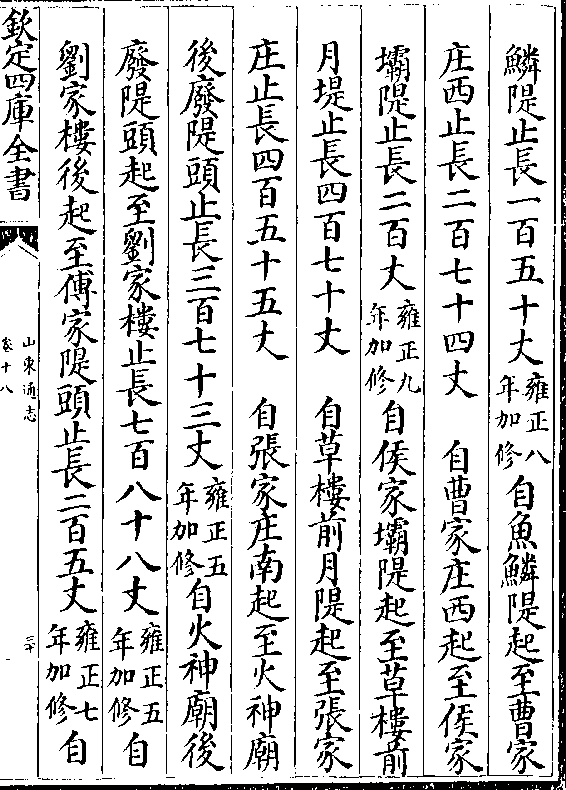 鱗隄止長一百五十丈雍正八年加修自魚鱗隄起至曹家
庄西止長二百七十四丈　自曹家庄西起至侯家
壩隄止長二百丈雍正九年加修自侯家壩隄起至草樓前
月堤止長四百七十丈　自草樓前月隄起至張家
庄止長四百五十五丈　自張家庄南起至火神廟
後廢隄頭止長三百七十三丈雍正五年加修自火神廟後
廢隄頭起至劉家樓止長七百八十八丈雍正五年加修自
劉家樓後起至傅家隄頭止長二百五丈雍正七年加修自
欽定四庫全書
山東通志
卷十八
三十